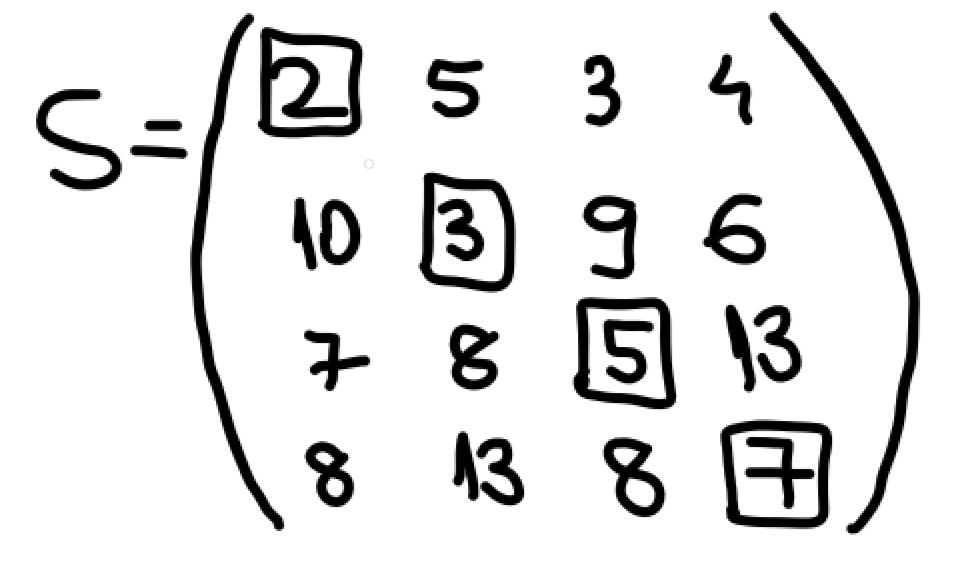 S= 2 5 3 4
10 3 9 6
7 8 5 13
8 13 8 7